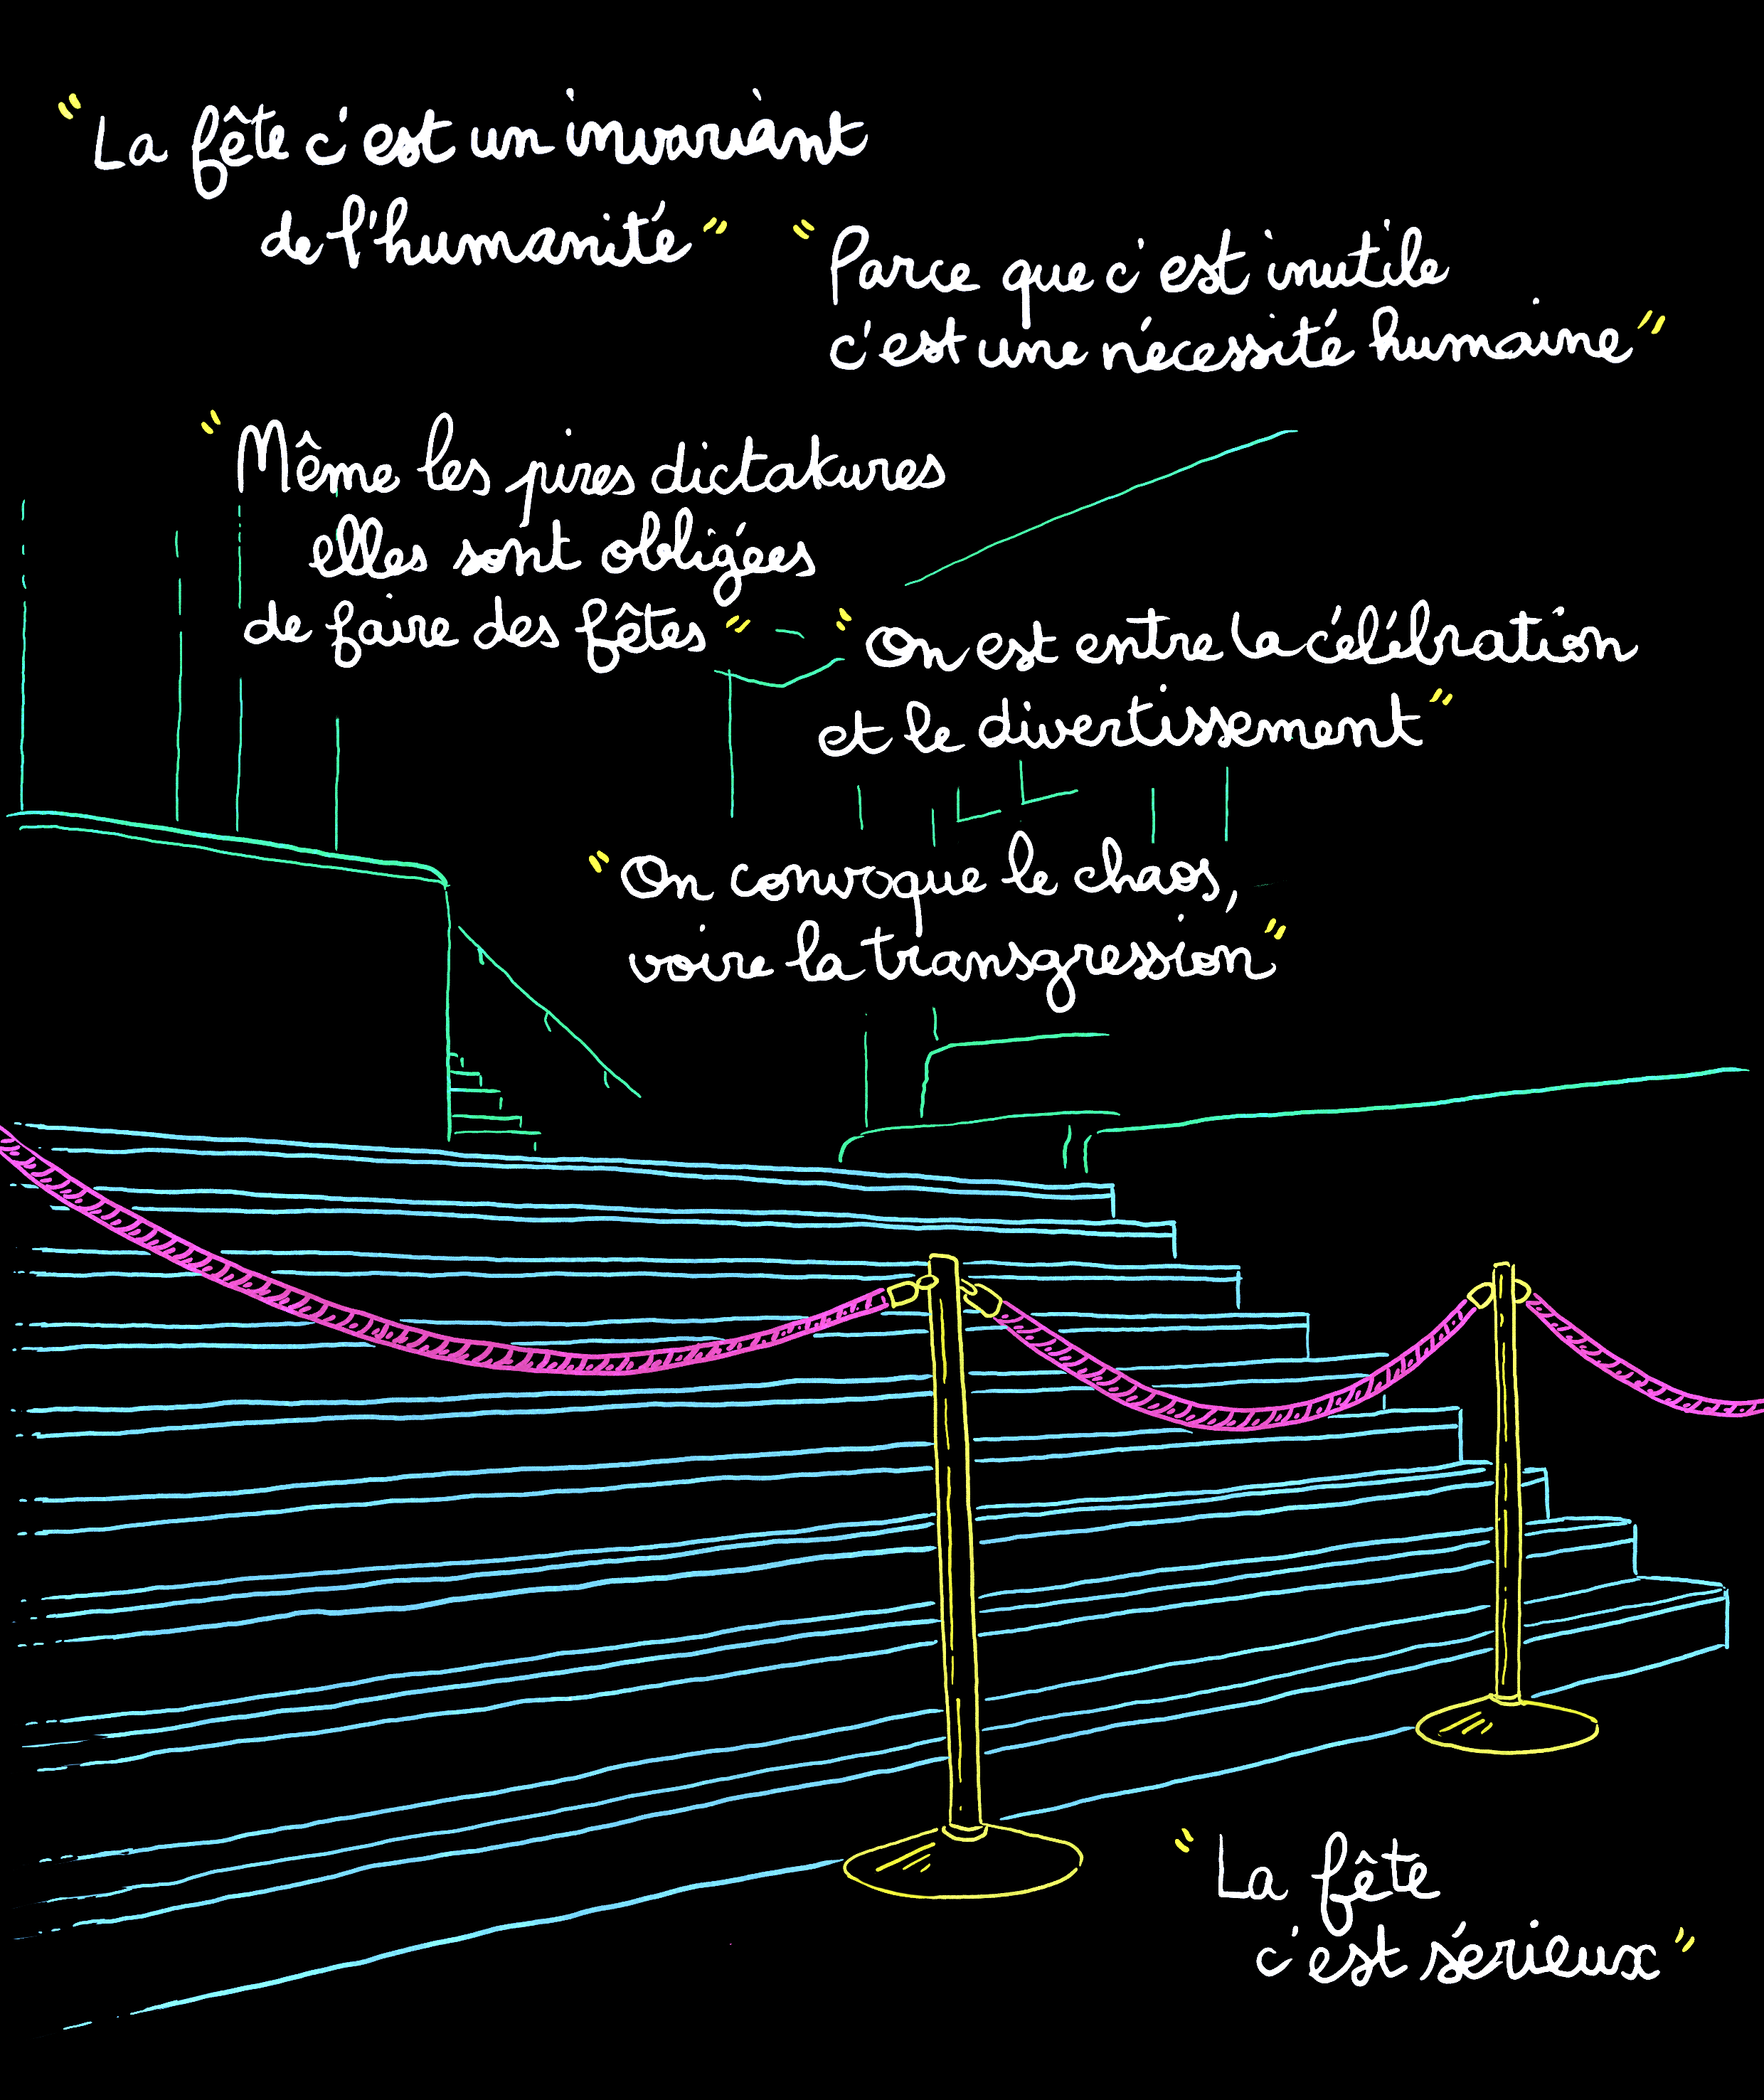 "La fête c'est un invariant
de l'humanité"
"Parce que c'est inutile
c'est une nécessité humaine"
"Même les pires dictatures
elles sont obligées
de faire des fêtes"
"On est entre la célébration
et le divertissement"
"On convoque le chaos,
voire la transgression"
"La fête
c'est sérieux"